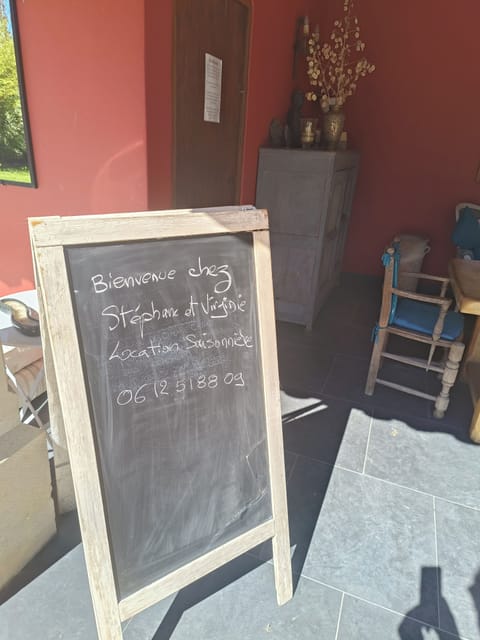 Bienvenue chez
Stéphane et Virginie
Location Saisonnière
06 12 51 88 09